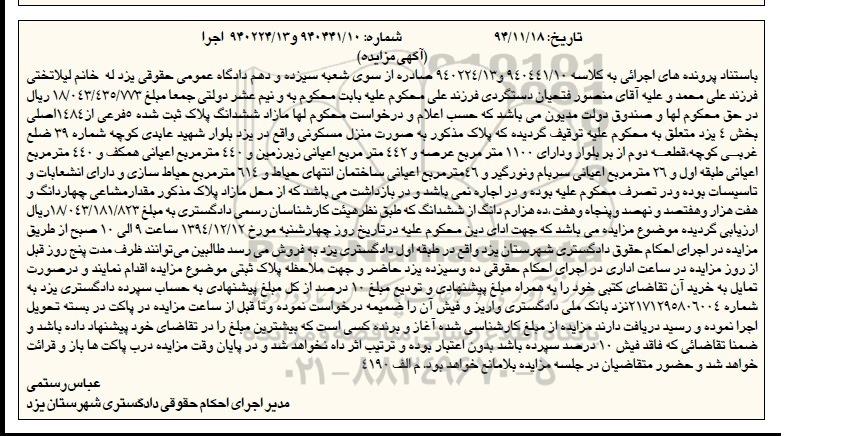 تاریخ: ۹۴/۱۱/۱۸ شماره: ۹۴۰۴۴۱/۱۰ و۹۴۰۲۲۴/۱۳ اجرا
(آگهی مزایده)
باستناد پرونده های اجرائی به کلاسه ۹۴۰۴۴۱/۱۰ و۹۴۰۲۲۴/۱۳ صادره از سوی شعبه سیزده و دهم دادگاه عمومی حقوقی یزد له خانم لیلاتختی
فرزند علی محمد و علیه آقای منصور فتحیان دستگردی فرزند علی محکوم علیه بابت محکوم به و نیم عشر دولتی جمعا مبلغ ۱۸/۰۴۳/۴۳۵/۷۷۳ ریال
در حق محکوم لها و صندوق دولت مدیون می باشد که حسب اعلام و درخواست محکوم لها مازاد ششدانگ پلاک ثبت شده ۵فرعی از۱۴۸۴اصلی
بخش ۴ یزد متعلق به محکوم علیه توقیف گردیده که پلاک مذکور به صورت منزل مسکونی واقع در یزد بلوار شهید عابدی کوچه شماره ۳۹ ضلع
غربی کوچه،قطعه دوم از بر بلوار ودارای ۱۱۰۰ متر مربع عرصه و ۴۴۲ متر مربع اعیانی زیرزمین و ۴۴۰ مترمربع اعیانی همکف و ۴۴۰ مترمربع
اعیانی طبقه اول و ۲۶ مترمربع اعیانی سربام ونورگیر و ۴۶مترمربع اعیانی ساختمان انتهای حیاط و ۶۱۴ مترمربع حیاط سازی و دارای انشعابات و
تاسیسات بوده ودر تصرف محکوم علیه بوده و در اجاره نمی باشد و در بازداشت می باشد که از محل مازاد پلاک مذکور مقدارمشاعی چهاردانگ و
هفت هزار وهفتصد و نهصد وپنجاه وهفت ،ده هزارم دانگ از ششدانگ که طبق نظرهیئت کارشناسان رسمی دادگستری به مبلغ ۱۸/۰۴۳/۱۸۱/۸۲۳ریال
ارزیابی گردیده موضوع مزایده می باشد که جهت ادای دین محکوم علیه درتاریخ روز چهارشنبه مورخ ۱۳۹۴/۱۲/۱۲ ساعت ۹ الی ۱۰ صبح از طریق
مزایده در اجرای احکام حقوق دادگستری شهرستان یزد واقع در طبقه اول دادگستری یزد به فروش می رسد طالبین می‌توانند ظرف مدت پنج روز قبل
از روز مزایده در ساعت اداری در اجرای احکام حقوقی ده وسیزده یزد حاضر و جهت ملاحظه پلاک ثبتی موضوع مزایده اقدام نمایند و درصورت
تمایل به خرید آن تقاضای کتبی خود را به همراه مبلغ پیشنهادی و تودیع مبلغ ۱۰ درصد از کل مبلغ پیشنهادی به حساب سپرده دادگستری یزد به
شماره ۲۱۷۱۲۹۵۸۰۶۰۰۴نزد بانک ملی دادگستری واریز و فیش آن را ضمیمه درخواست نموده وتا قبل از ساعت مزایده در پاکت در بسته تحویل
اجرا نموده و رسید دریافت دارند مزایده از مبلغ کارشناسی شده آغاز و برنده کسی است که بیشترین مبلغ را در تقاضای خود پیشنهاد داده باشد و
ضمنا تقاضائی که فاقد فیش ۱۰ درصد سپرده باشد بدون اعتبار بوده و ترتیب اثر داه نخواهد شد و در پایان وقت مزایده درب پاکت ها باز و قرائت
خواهد شد و حضور متقاضیان در جلسه مزایده بلامانع خواهد بود. م الف ۴۱۹۰
عباس رستمی
مدیر اجرای احکام حقوقی دادگستری شهرستان یزد
۰۲۱-۸۸۳۴۹۶۷۰-۵